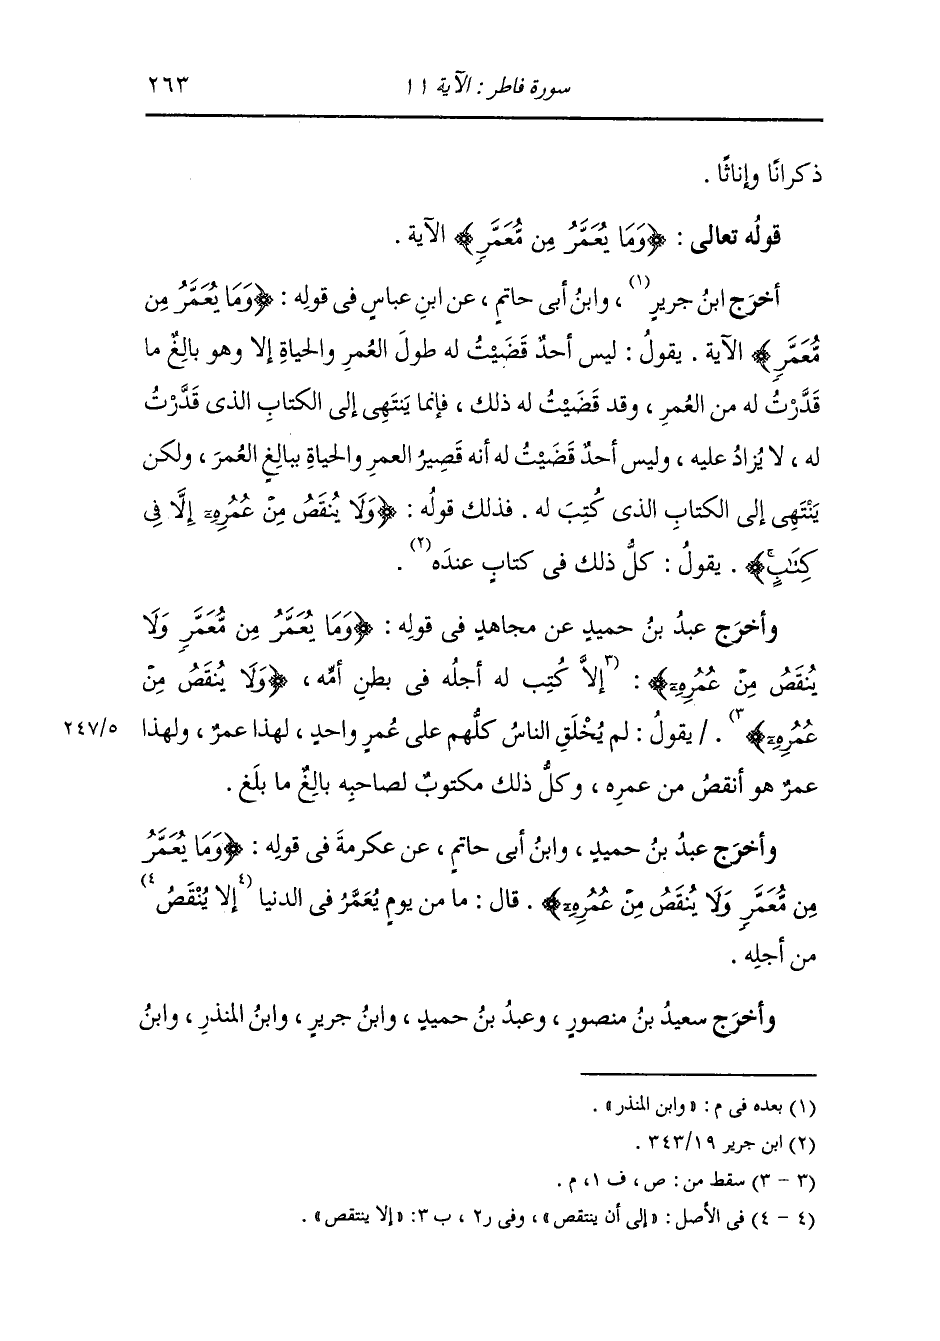 سورة فاطر : الآية ١١ ٢٦٣
ذكرانًا وإناثًا .
قولُه تعالى : ﴿وَمَا يُعَمَّرُ مِن مُّعَمَّرٍ﴾ الآية .
أخرَج ابنُ جريرٍ(١) ، وابنُ أبى حاتمٍ ، عن ابنِ عباسٍ فى قولِه : ﴿وَمَا يُعَمَّرُ مِن
مُّعَمَّرٍ﴾ الآية . يقولُ : ليس أحدٌ قَضَيْتُ له طولَ العُمرِ والحياةِ إلا وهو بالِغٌ ما
قَدَّرْتُ له من العُمرِ ، وقد قَضَيْتُ له ذلك ، فإنما يَنتَهِى إلى الكتابِ الذى قَدَّرْتُ
له ، لا يُزادُ عليه ، وليس أحدٌ قَضَيْتُ له أنه قَصِيرُ العمرِ والحياةِ ببالِغٍ العُمرَ ، ولكن
يَنْتَهِى إلى الكتابِ الذى كُتِبَ له . فذلك قولُه : ﴿وَلَا يُنقَصُ مِنْ عُمُرِهِۦٓ إِلَّا فِى
كِتَٰبٍۚ﴾ . يقولُ : كلُّ ذلك فى كتابٍ عندَه(٢) .
وأخرَج عبدُ بنُ حميدٍ عن مجاهدٍ فى قولِه : ﴿وَمَا يُعَمَّرُ مِن مُّعَمَّرٍ وَلَا
يُنقَصُ مِنْ عُمُرِهِۦٓ﴾ : (٣إلاَّ كُتِب له أجلُه فى بطنِ أمِّه ، ﴿وَلَا يُنقَصُ مِنْ
عُمُرِهِۦٓ﴾٣) . / يقولُ : لم يُخْلَقِ الناسُ كلُّهم على عُمرٍ واحدٍ ، لهذا عمرٌ ، ولهذا ٢٤٧/٥
عمرٌ هو أنقصُ من عمرِه ، وكلُّ ذلك مكتوبٌ لصاحبِه بالِغٌ ما بلَغ .
وأخرَج عبدُ بنُ حميدٍ ، وابنُ أبى حاتمٍ ، عن عكرمةَ فى قولِه : ﴿وَمَا يُعَمَّرُ
مِن مُّعَمَّرٍ وَلَا يُنقَصُ مِنْ عُمُرِهِۦٓ﴾ . قال : ما من يومٍ يُعَمَّرُ فى الدنيا (٤إلا يُنْقَصُ٤)
من أجلِه .
وأخرَج سعيدُ بنُ منصورٍ ، وعبدُ بنُ حميدٍ ، وابنُ جريرٍ ، وابنُ المنذرِ ، وابنُ
(١) بعده فى م : «وابن المنذر» .
(٢) ابن جرير ٣٤٣/١٩ .
(٣ - ٣) سقط من : ص ، ف ١، م .
(٤ - ٤) فى الأصل : «إلى أن ينتقص» ، وفى ر٢ ، ب ٣: «إلا ينتقص» .